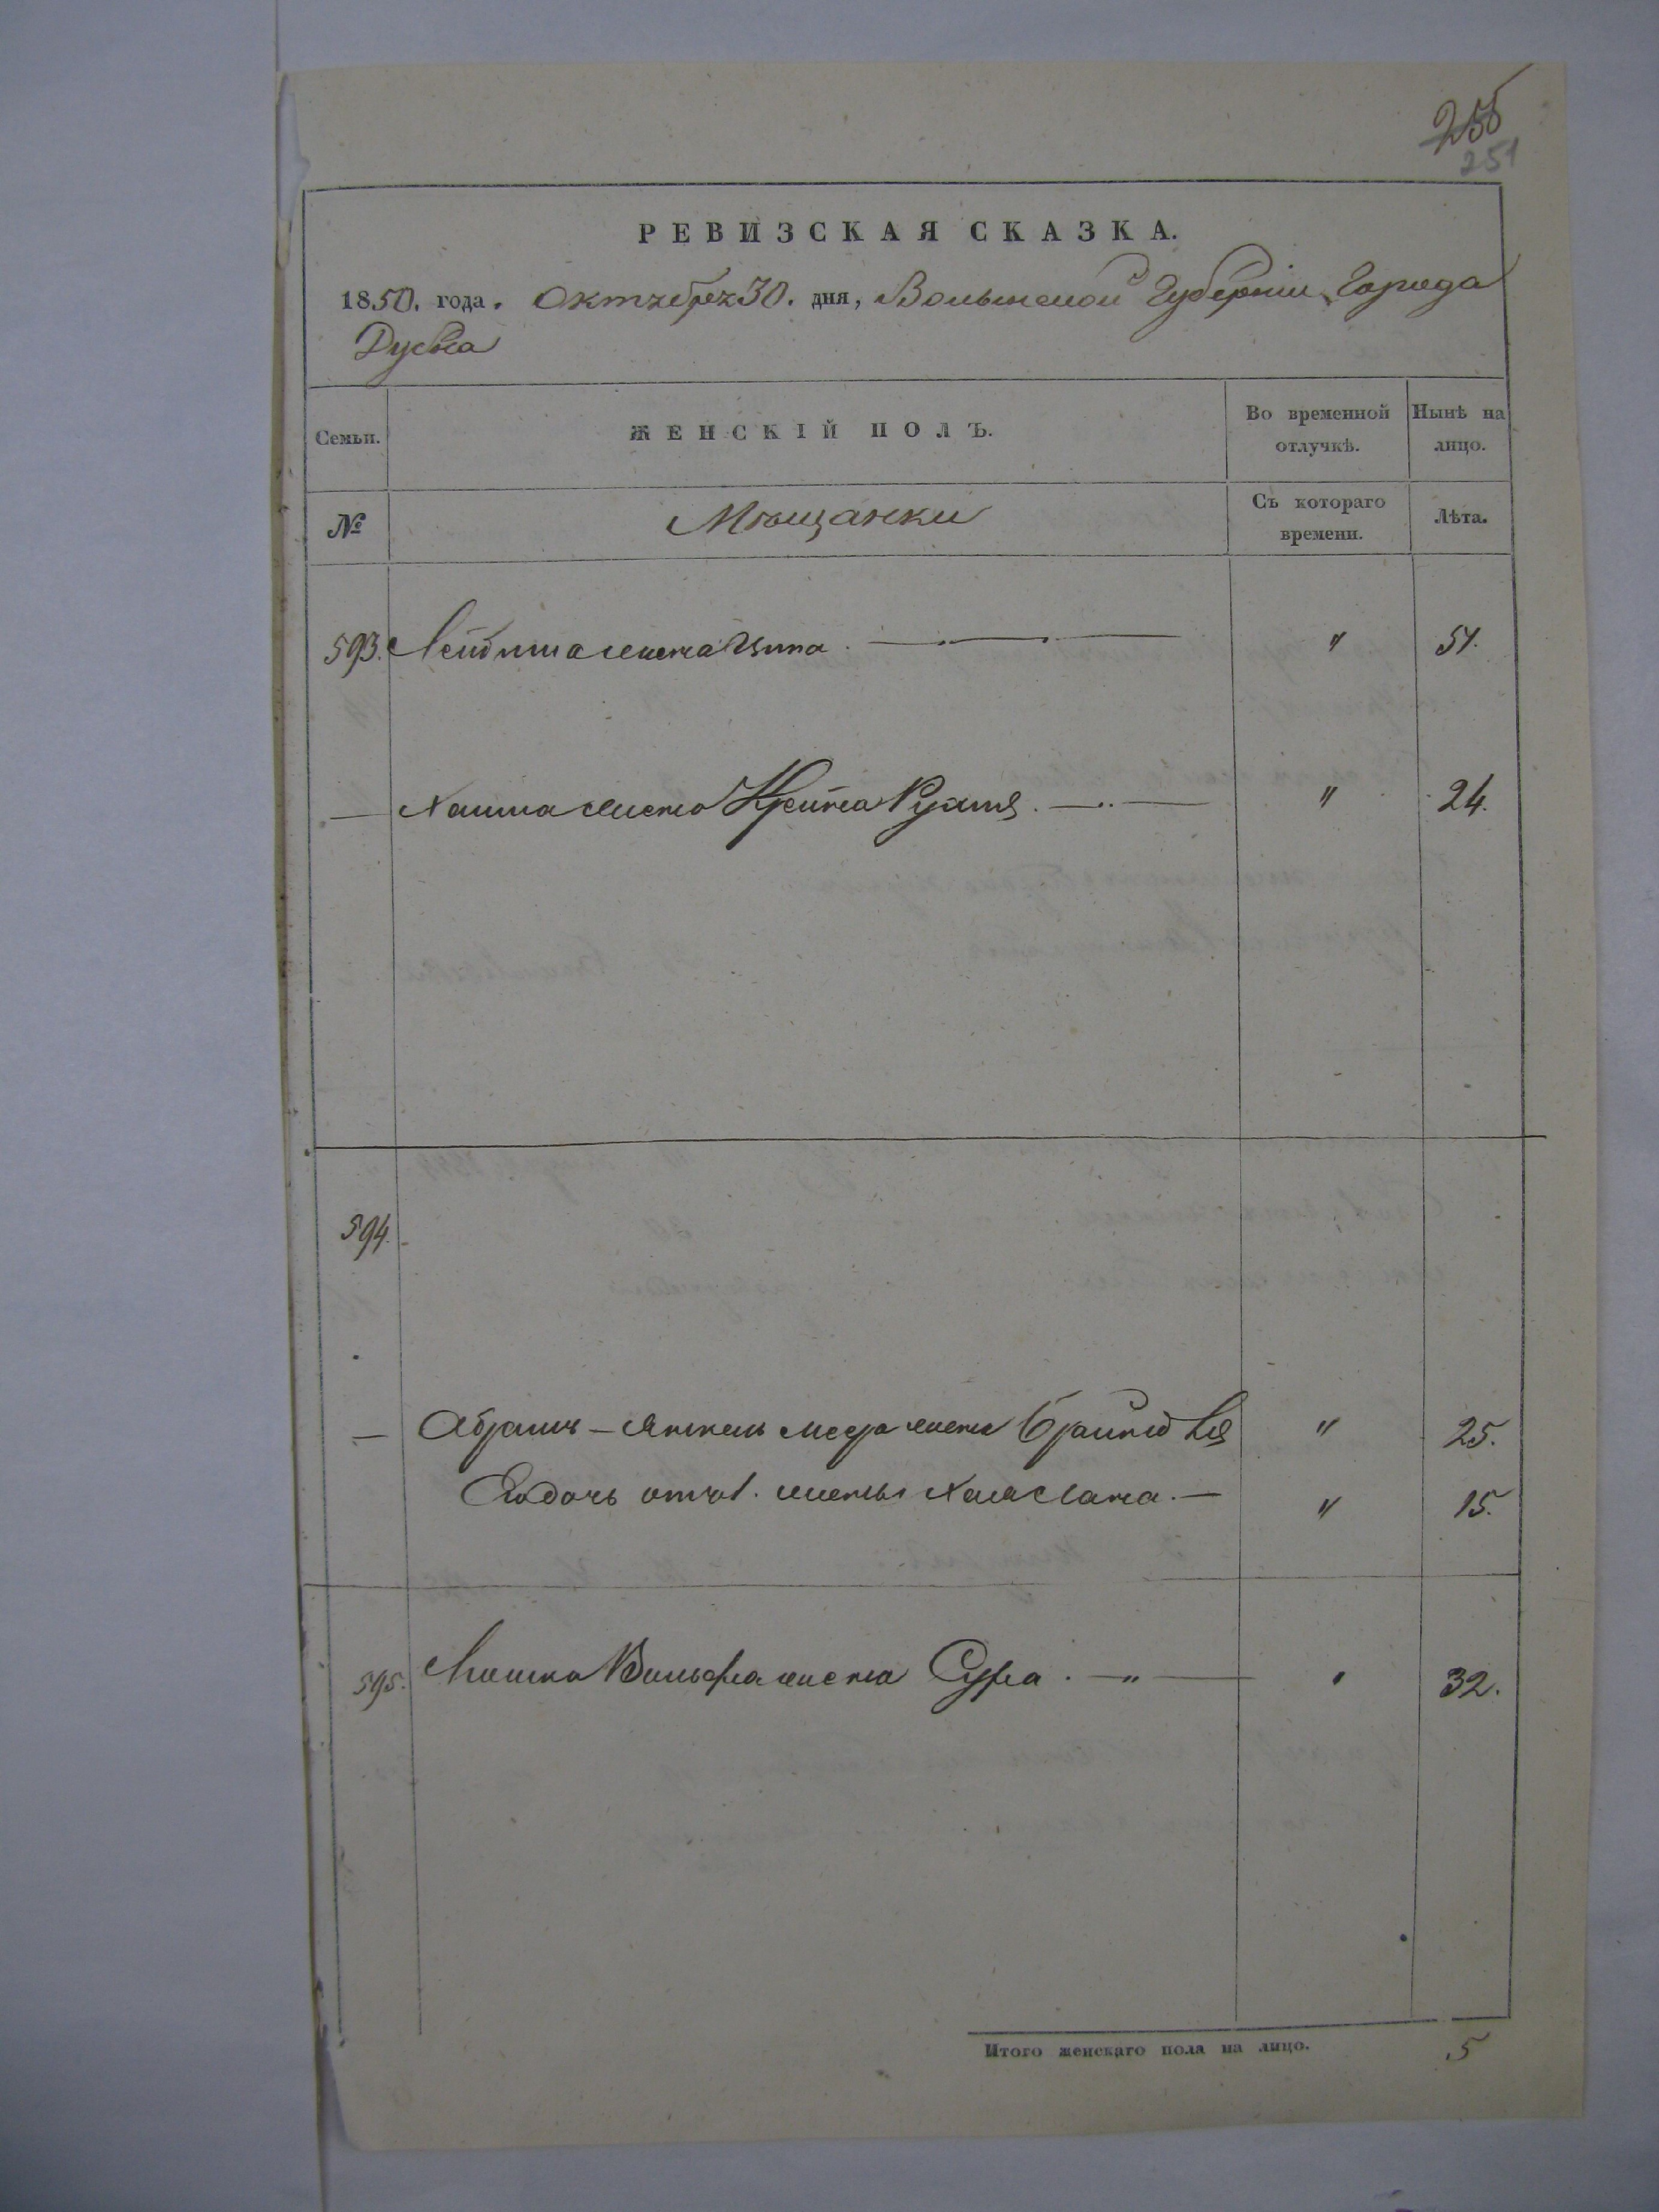 255
251
РЕВИЗСКАЯ СКАЗКА.
1850. года. Октября 30. дня, Волынской Губерніи, Города
Дубна
Семьи.
ЖЕНСКІЙ ПОЛЪ.
Во временной отлучкѣ.
Нынѣ на лицо.
№
Мѣщанки
Съ котораго времени.
Лѣта.
593. Лейбиша жена Ципа. " 51.
— Хаима жена Крейна Рухля. " 24.
594.
— Абрамъ-Янкель жена " 25.
Его дочь отъ 1. жены Хая Слата. — " 15.
595. Мошка Вольфа жена Сура. " 32.
Итого женскаго пола на лицо. 5